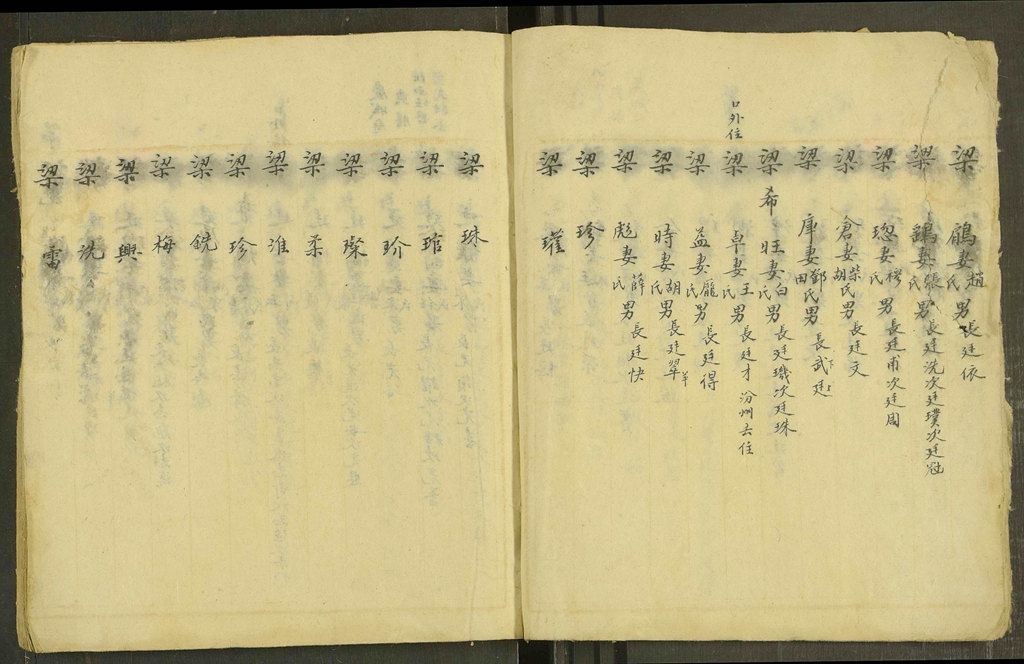 梁鵑妻趙氏男長廷依
梁鷂妻張氏男長廷洗次廷璞次廷冠
梁璁妻穆氏男長廷甫次廷周
梁倉妻柴胡氏男長廷文
梁庫妻鄧田氏男長武廷
梁希旺妻白氏男長廷璣次廷珠
口外住
梁卓妻王氏男長廷才汾州去住
梁益妻龐氏男長廷得
梁時妻胡氏男長廷翠
梁彪妻薛氏男長廷快
梁珍
梁瑾
梁珠
梁琯
梁玠
梁璨
梁柔
梁淮
梁珍
梁銳
梁梅
梁興
梁洗
梁雷